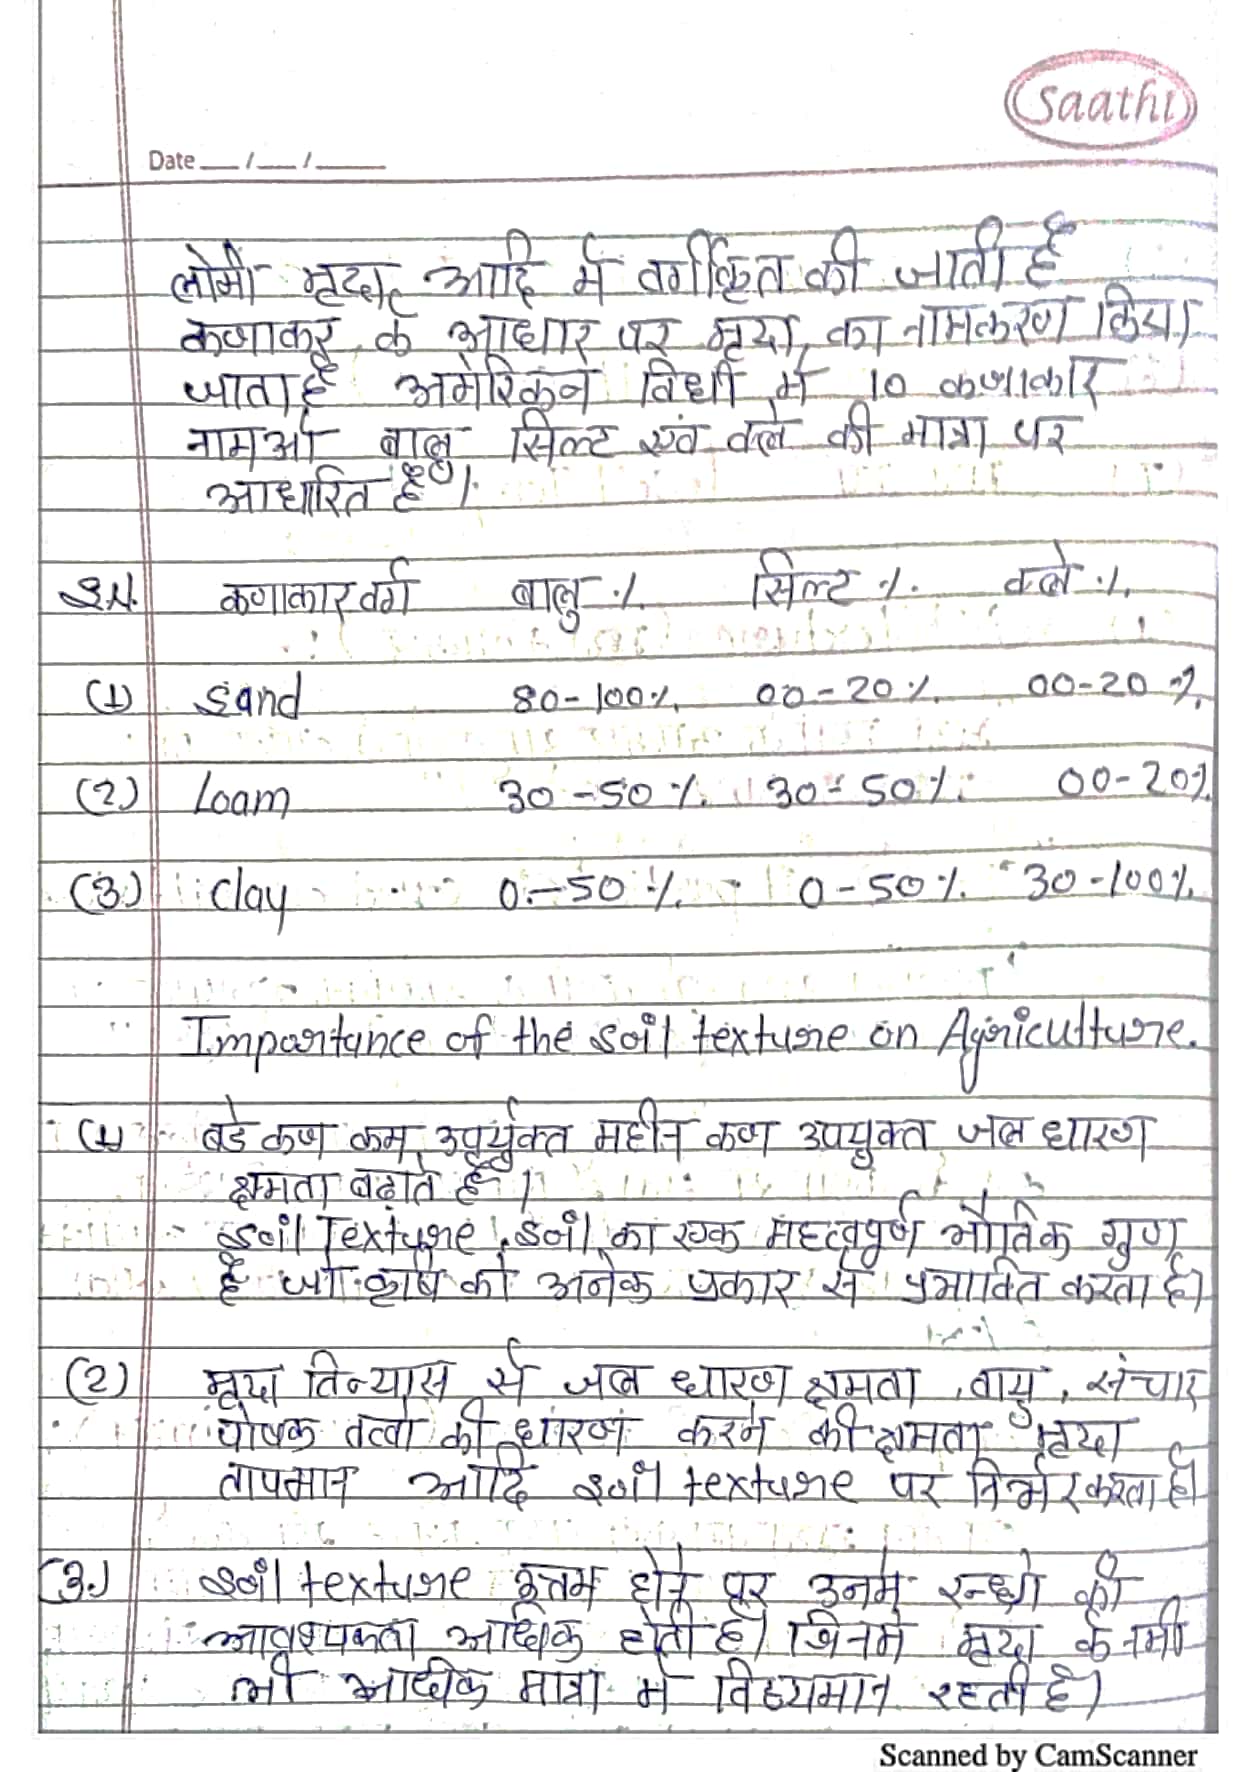 Saathi
Date __/__/____
लोमी मृदा, आदि में वर्गीकृत की जाती है
कणाकार के आधार पर मृदा, का नामकरण किया
जाता है अमेरिकन विधी में 10 कणाकार
नामओ बालु सिल्ट एवं क्ले की मात्रा पर
आधारित है।
कणाकार वर्ग बालु % सिल्ट % क्ले %
(1) Sand 80-100% 00-20% 00-20%
(2) Loam 30-50% 30-50% 00-20%
(3) Clay 0-50% 0-50% 30-100%
Importance of the soil texture on Agriculture.
(1) बडे कण कम, उपर्युक्त महीन कण उपयुक्त जल धारण
क्षमता बढ़ाते है।
Soil Texture, Soil का एक महत्वपूर्ण भौतिक गुण
है जो कृषि को अनेक प्रकार से प्रभावित करता है।
(2) मृदा विन्यास से जल धारण क्षमता, वायु, संचार
पोषक तत्वो की धारण करने की क्षमता मृदा
तापमान आदि soil texture पर निर्भर करता है।
(3.) Soil texture उत्तम होने पर उनमे रन्ध्रो की
आवश्यकता अधिक होती है। जिनमे मृदा के नमी
भी अधीक मात्रा मे विद्यमान रहती है।
Scanned by CamScanner